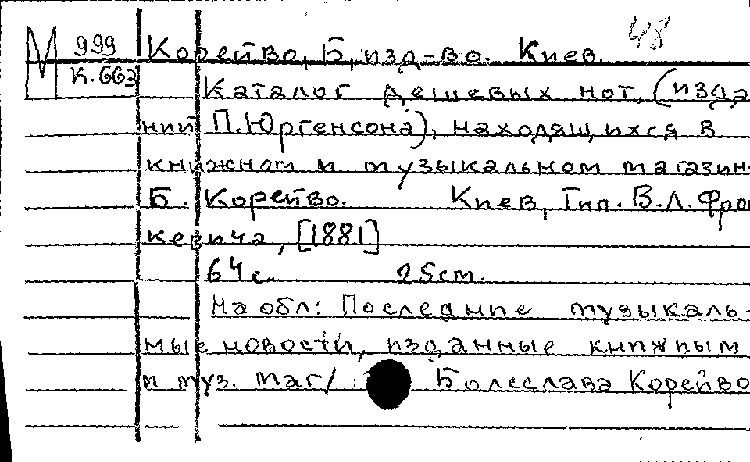 48
М 999 Корейво, Б, изд-во. Киев.
К.663 Каталог дешевых нот, (изда
ний П. Юргенсона), находящихся в
книжном и музыкальном магазин-
Б. Корейво. Киев, Тип. В.Л. Фрон
кевича, [1881]
64 с. 25 cm.
На обл: Последние музыкаль-
ные новости, изданные книжным
и муз. маг/ Болеслава Корейво